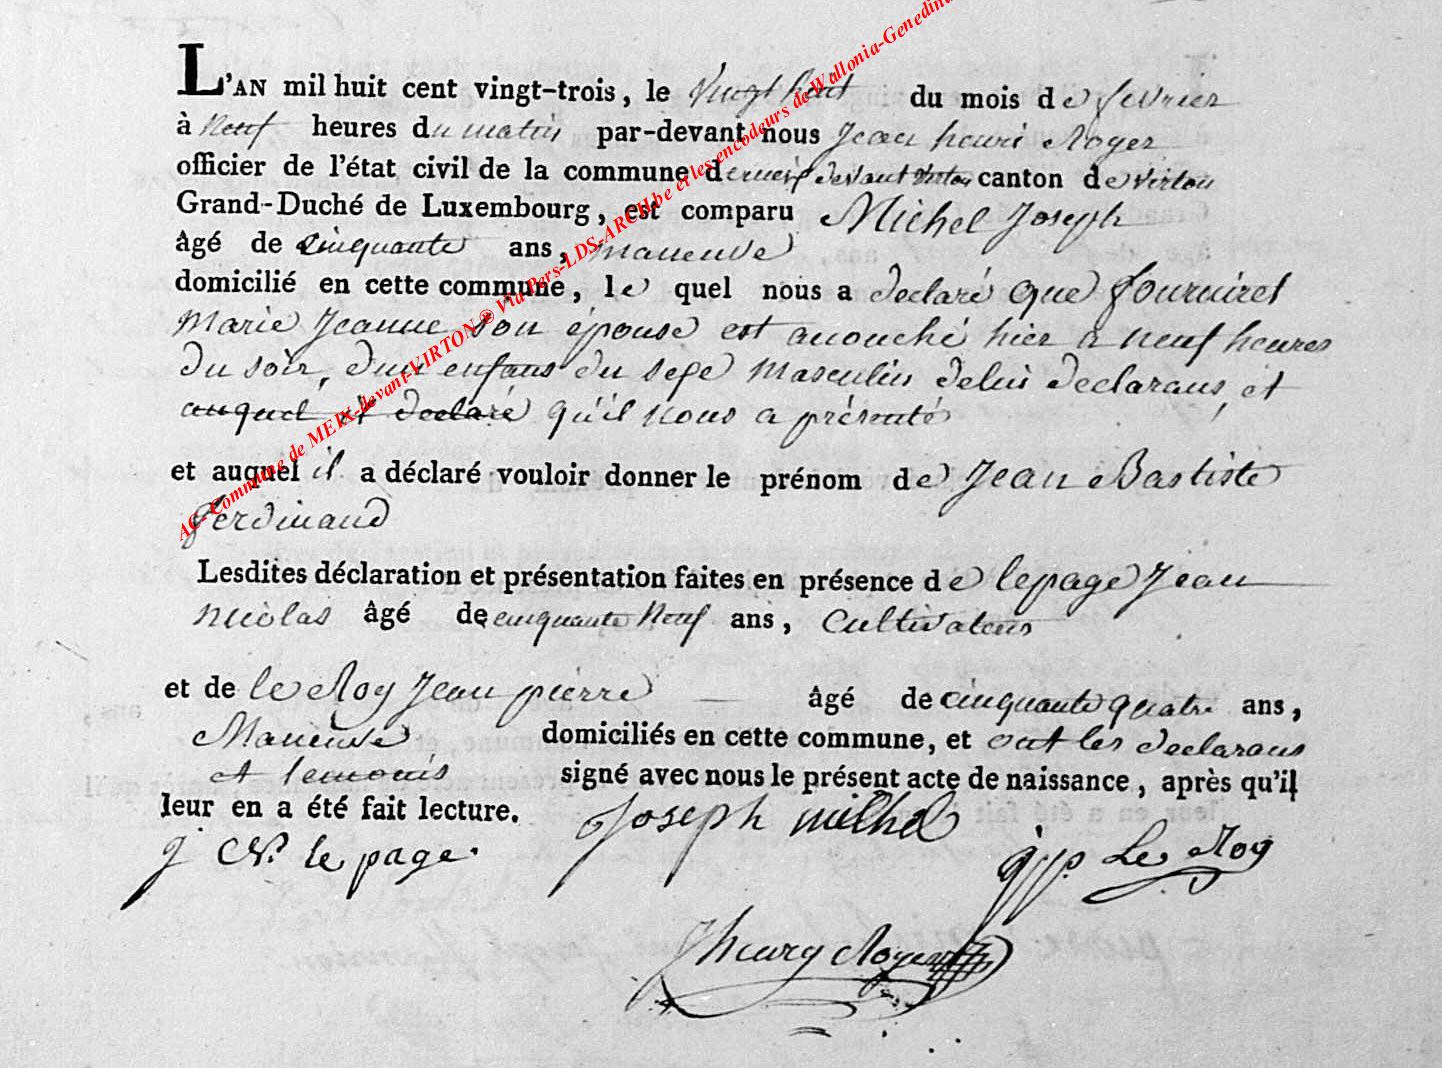 L'AN mil huit cent vingt-trois, le vingt huit du mois de fevrier
à Neuf heures du matin par-devant nous Jean henri Roger
officier de l'état civil de la commune de meix devant virton canton de virton
Grand-Duché de Luxembourg, est comparu Michel Joseph
âgé de cinquante ans, maneuve
domicilié en cette commune, le quel nous a declaré que fourniret
Marie Jeanne son épouse est auouché hier a neuf heures
du soir, d'un enfans du sexe Masculin delui declarans, et
auquel et declaré qu'il nous a présenté
et auquel il a déclaré vouloir donner le prénom de Jean Bastiste
ferdinand
Lesdites déclaration et présentation faites en présence de lepage Jean
Nicolas âgé de cinquante Neuf ans, Cultivateur
et de le Roy Jean pierre âgé de cinquante quatre ans,
Maneuve domiciliés en cette commune, et ont les declarans
et temoins signé avec nous le présent acte de naissance, après qu'il
leur en a été fait lecture.
Joseph michel
j N. le page.
jp. Le Roy
Jhenry Roger
AC- Commune de MEIX-devant-VIRTON ® Via Pers-LDS-ARCH.be et les encodeurs de Wallonia-Genedina